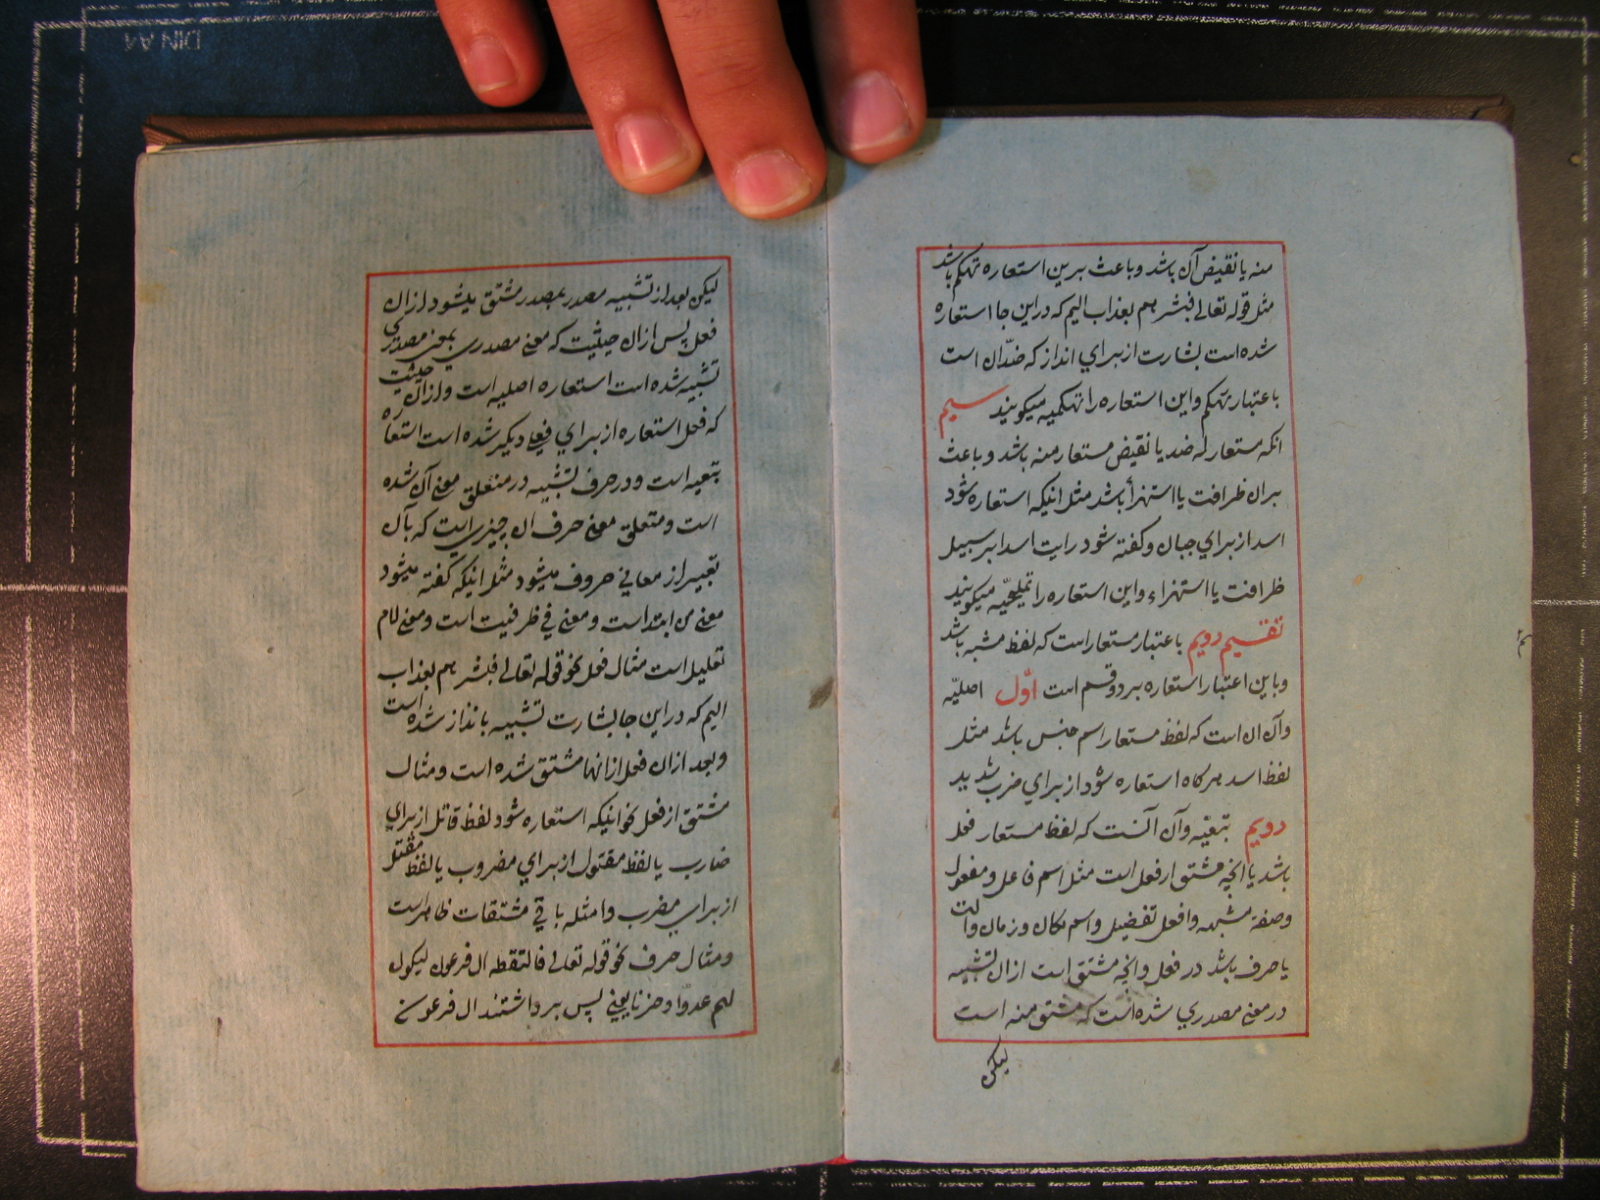 منه یا نقیض آن باشد و باعث برین استعاره تهکم باشد
مثل قوله تعالی فبشرهم بعذاب الیم که در این جا استعاره
شده است بشارت از برای انذار که ضدّان است
باعتبار تهکم و این استعاره را تهکمیه میکویند سیم
انکه مستعار له ضد یا نقیض مستعار منه باشد و باعث
بران ظرافت یا استهزأ باشد مثل اینکه استعاره شود
اسد از برای جبان و کفته شود رایت اسدا بر سبیل
ظرافت یا استهزاء و این استعاره را تملیحیّه میکویند
تقسیم دویم باعتبار مستعار است که لفظ مشبه باشد
و باین اعتبار استعاره بر دو قسم است اوّل اصلیّه
و آن ان است که لفظ مستعار اسم جنس باشد مثل
لفظ اسد هرکاه استعاره شود از برای ضرب شدید
دویم تبعیّه و آن آنست که لفظ مستعار فعل
باشد یا انچه مشتق از فعل است مثل اسم فاعل و مفعول
و صفة مشبهه و افعل تفضیل و اسم مکان و زمان و الت
یا حرف باشد در فعل و انچه مشتق است ازان تشبیه
در معنی مصدری شده است که مشتق منه است
لیکن
لیکن بعد از تشبیه مصدر بمصدر مشتق میشود ازان
فعل پس ازان حیثیت که معنی مصدری بمعنی مصدری
تشبیه شده است استعاره اصلیه است و ازان حیثیت
که فعل استعاره از برای فعل دیکر شده است استعاره
تبعیه است و در حرف تشبیه در متعلق معنی آن شده
است و متعلق معنی حرف ان چیزی است که بآن
تعبیر از معانی حروف میشود مثل اینکه کفته میشود
معنی من ابتداست و معنی فی ظرفیت است و معنی لام
تعلیل است مثال فعل نحو قوله تعالی فبشرهم بعذاب
الیم که در این جا بشارت تشبیه بانذار شده است
و بعد ازان فعل ازانها مشتق شده است و مثال
مشتق از فعل نحو اینکه استعاره شود لفظ قاتل از برای
ضارب یا لفظ مقتول از برای مضروب یا لفظ مقتل
از برای مضرب و امثله باقی مشتقات ظاهر است
و مثال حرف نحو قوله تعالی فالتقطه ال فرعون لیکون
لهم عدوّا و حزنا یعنی پس برداشتند ال فرعون